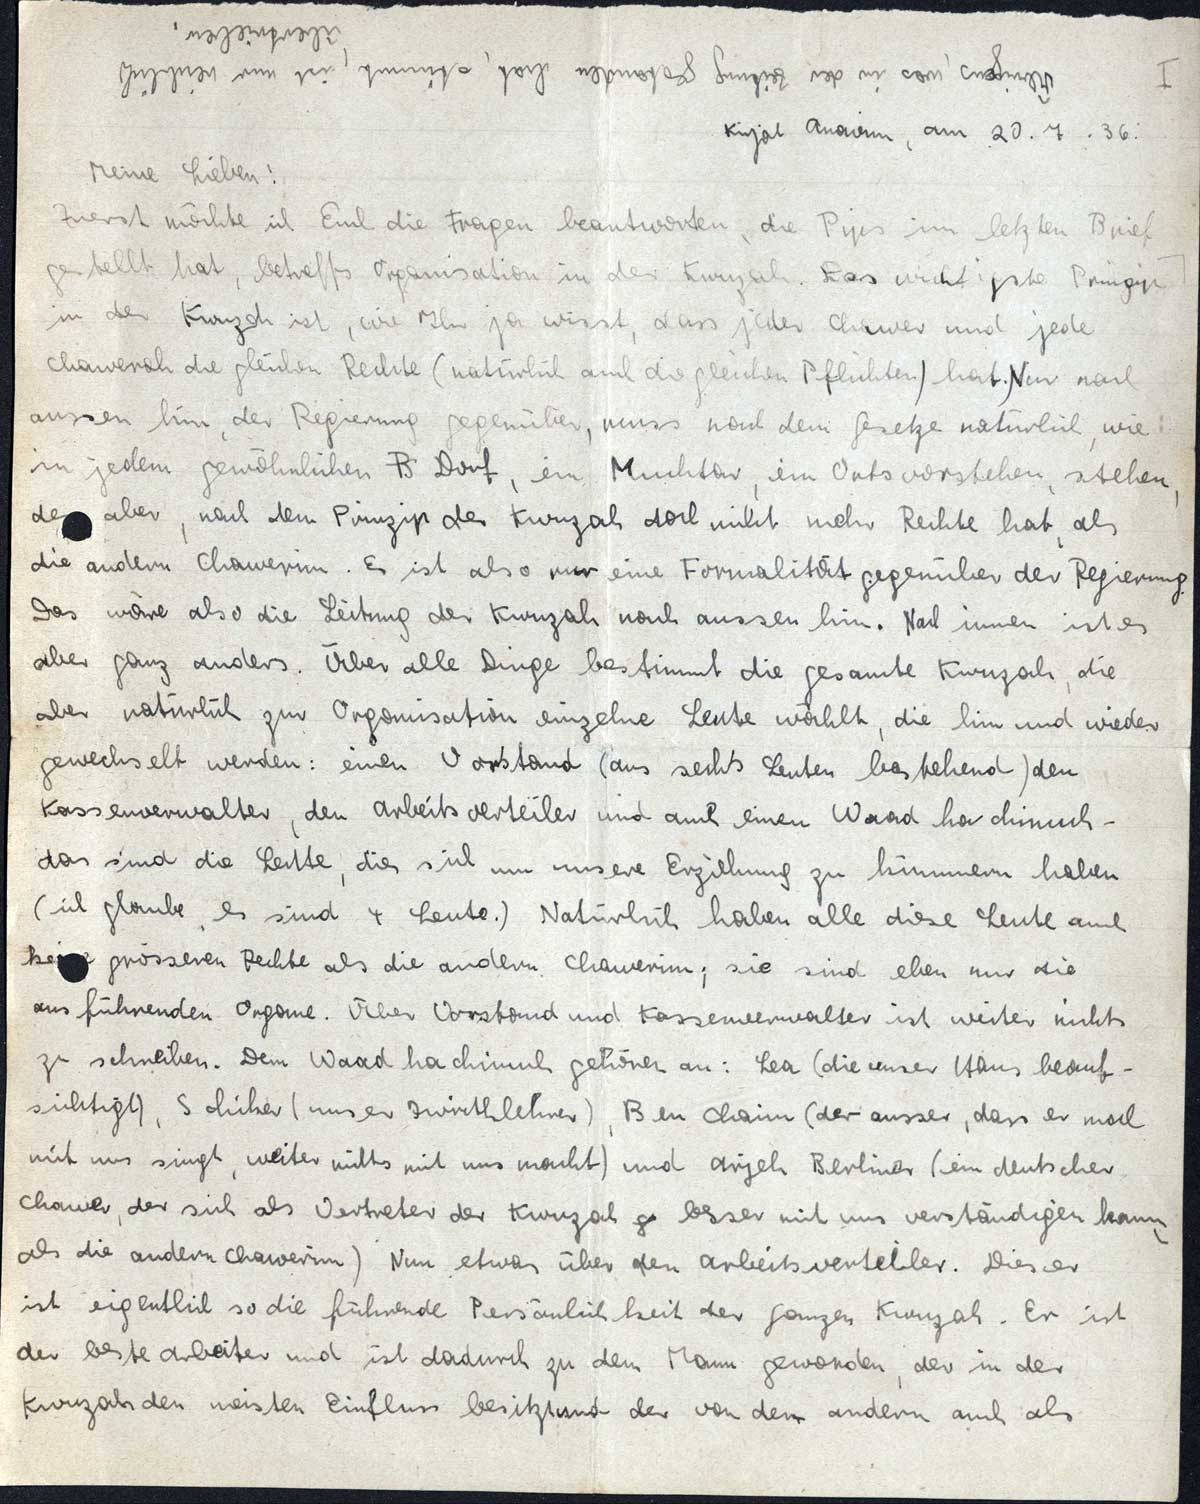 Übrigens, was in der Zeitung gestanden hat, stimmt, ist nur reichlich
übertrieben.
I
Kirjat Anawim, am 20.7.36.
Meine Lieben!
Zuerst möchte ich Euch die Fragen beantworten, die Pips im letzten Brief
gestellt hat, betreffs Organisation in der Kwuzah. Das wichtigste Prinzip
in der Kwuzah ist, wie Ihr ja wisst, dass jeder Chawer und jede
Chawerah die gleichen Rechte (natürlich auch die gleichen Pflichten) hat. Nur nach
aussen hin, der Regierung gegenüber, muss nach dem Gesetze natürlich, wie
in jedem gewöhnlichen Dorf, ein Muchtar, ein Ortsvorsteher, stehen,
der aber, nach dem Prinzip der Kwuzah doch nicht mehr Rechte hat, als
die andern Chawerim. Es ist also nur eine Formalität gegenüber der Regierung.
Das wäre also die Leitung der Kwuzah nach aussen hin. Nach innen ist es
aber ganz anders. Über alle Dinge bestimmt die gesamte Kwuzah, die
aber natürlich zur Organisation einzelne Leute wählt, die hin und wieder
gewechselt werden: einen Vorstand (aus sechs Leuten bestehend) den
Kassenverwalter, den Arbeitsverteiler und auch einen Waad hachinuch-
das sind die Leute, die sich um unsere Erziehung zu kümmern haben
(ich glaube, es sind 4 Leute.) Natürlich haben alle diese Leute auch
keine grösseren Rechte als die andern Chawerim; sie sind eben nur die
ausführenden Organe. Über Vorstand und Kassenverwalter ist weiter nichts
zu schreiben. Dem Waad hachinuch gehören an: Lea (die unser Haus beauf-
sichtigt), Schiher (unser Iwrithlehrer), Ben Chaim (der ausser, dass er mal
mit uns singt, weiter nichts mit uns macht) und Arjeh Berliner (ein deutscher
Chawer, der sich als Vertreter der Kwuzah besser mit uns verständigen kann,
als die andern Chawerim) Nun etwas über den Arbeitsverteiler. Dieser
ist eigentlich so die führende Persönlichkeit der ganzen Kwuzah. Er ist
der beste Arbeiter und ist dadurch zu dem Mann geworden, der in der
Kwuzah den meisten Einfluss besitzt und der von den andern auch als